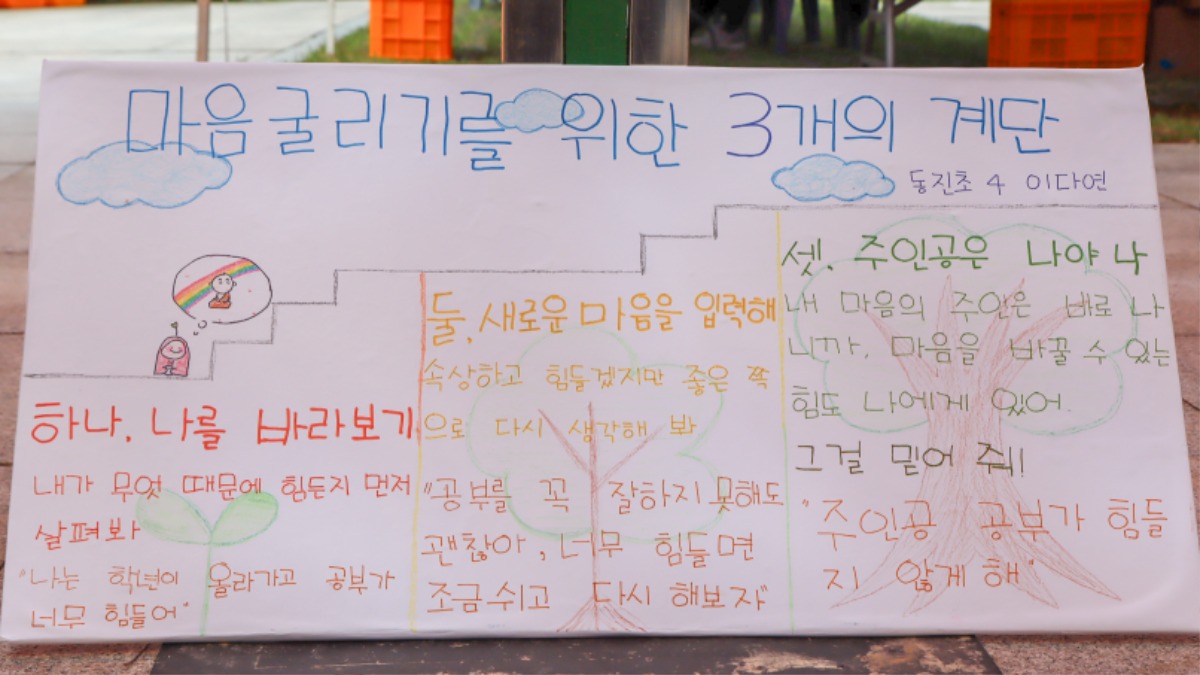 마음굴리기를 위한 3개의 계단
동진초 4 이다연
하나. 나를 바라보기
내가 무엇 때문에 힘든지 먼저
살펴봐
"나는 학년이 올라가고 공부가
너무 힘들어"
둘. 새로운 마음을 입력해
속상하고 힘들겠지만 좋은 쪽
으로 다시 생각해 봐
"공부를 꼭 잘하지 못해도
괜찮아, 너무 힘들면
조금 쉬고 다시 해보자"
셋. 주인공은 나야 나
내 마음의 주인은 바로 나
니까. 마음을 바꿀 수 있는
힘도 나에게 있어.
그걸 믿어 줘!
"주인공 공부가 힘들
지 않게 해"